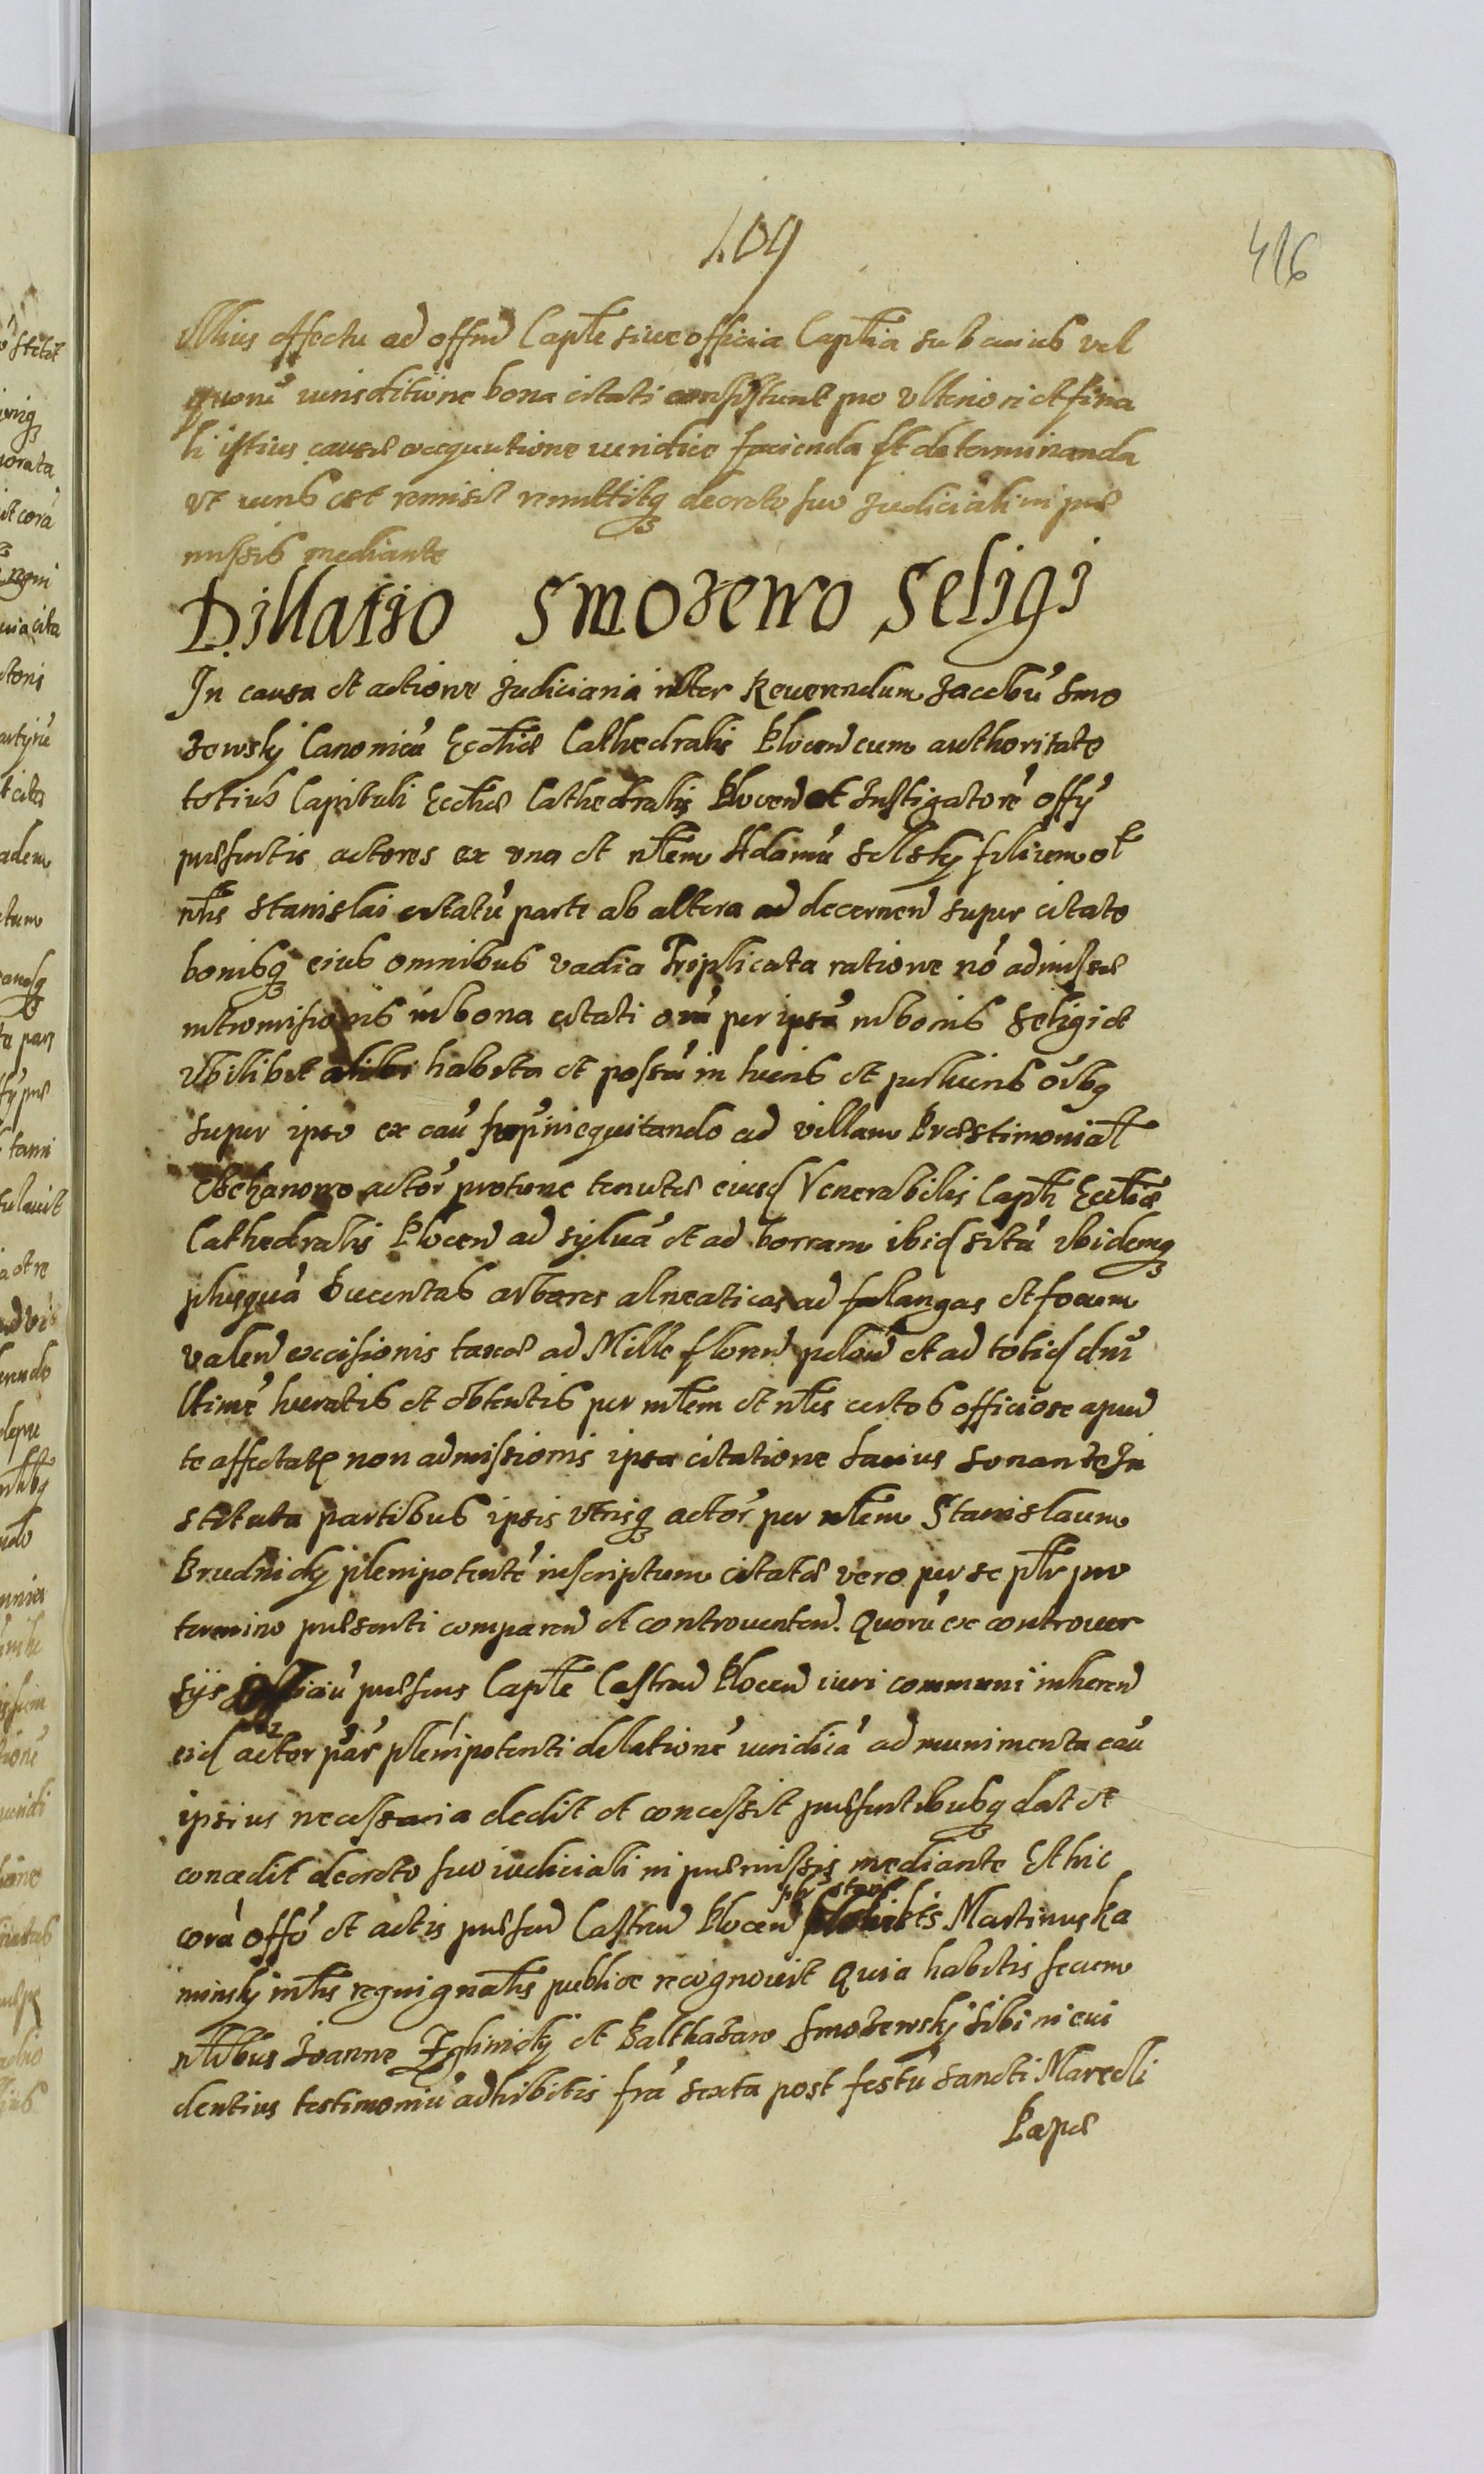 409
416
illius effectu ad offm Caplle siue officia Captlia sub cuius vel
quoru iurisditione bona citati consistunt pro vlteriori et fina
li istius causæ exequutione iuridice facienda et determinanda
vt iuris est remisit remittitq decreto suo Judiciali in præ
missis mediante
Dillatio Smosewo Seligi
In causa et actione Judiciaria inter Reuerendum Jacobu Smo
sewsky Canonicu Eccliæ Cathedralis Plocen cum authoritate
totius Capituli Eccliæ Cathedralis Plocen et Instigatore offy
præsentis actores ex vna et nlem Adamu Selsky filium ol
nlis Stanislai citatu parte ab altera ad decernen super citato
bonisq eius omnibus vadia Triplicata ratione no admissæ
intromisionis in bona citati oia per ipsu in bonis Seligi et
vbilibet alibi habita et possa in hueris et perhueris oibq
super ipso ex cau inequitando ad villam Præstimonial
actor protunc tenutæ eiusd Venerabilis Caplli Eccliæ
Cathedralis Plocen ad sylua et ad borram ibid sita ibidemq
plusqua Ducentas arbores alneaticas ad falangas et focum
valen excisionis taxæ ad Mille floren polon et ad totid dni
ltime lucratis et obtentis per nlem et nles certos officiose apud
te affectate non admissionis ipsa citatione latius sonante In
stituta partibus ipsis vtrisq actor per nlem Stanislaum
Brudnicky plenipotente inscriptum citatæ vero per se pltr pro
termino præsenti comparen et controuerten. Quoru ex controuer
sijs Officiu præsens Caplle Castren Plocen iuri communi inheren
eid actor par plenipotenti dellatione iuridica ad munimenta cau
ipsius necessaria dedit et concessit præsentibusq dat et
concedit decreto suo iudiciali in præmissis mediante Et hic
cora offo et actis præsen Castren Plocen plr stans Martinus Ka
minsky mtlis regni gnalis publice recognouit Quia habitis secum
nlibus Joanne Zglinicky et Balthasaro Smosewsky sibi in eui
dentius testimoniu adhibitis fra sexta post festu Sancti Marcelli
Papæ